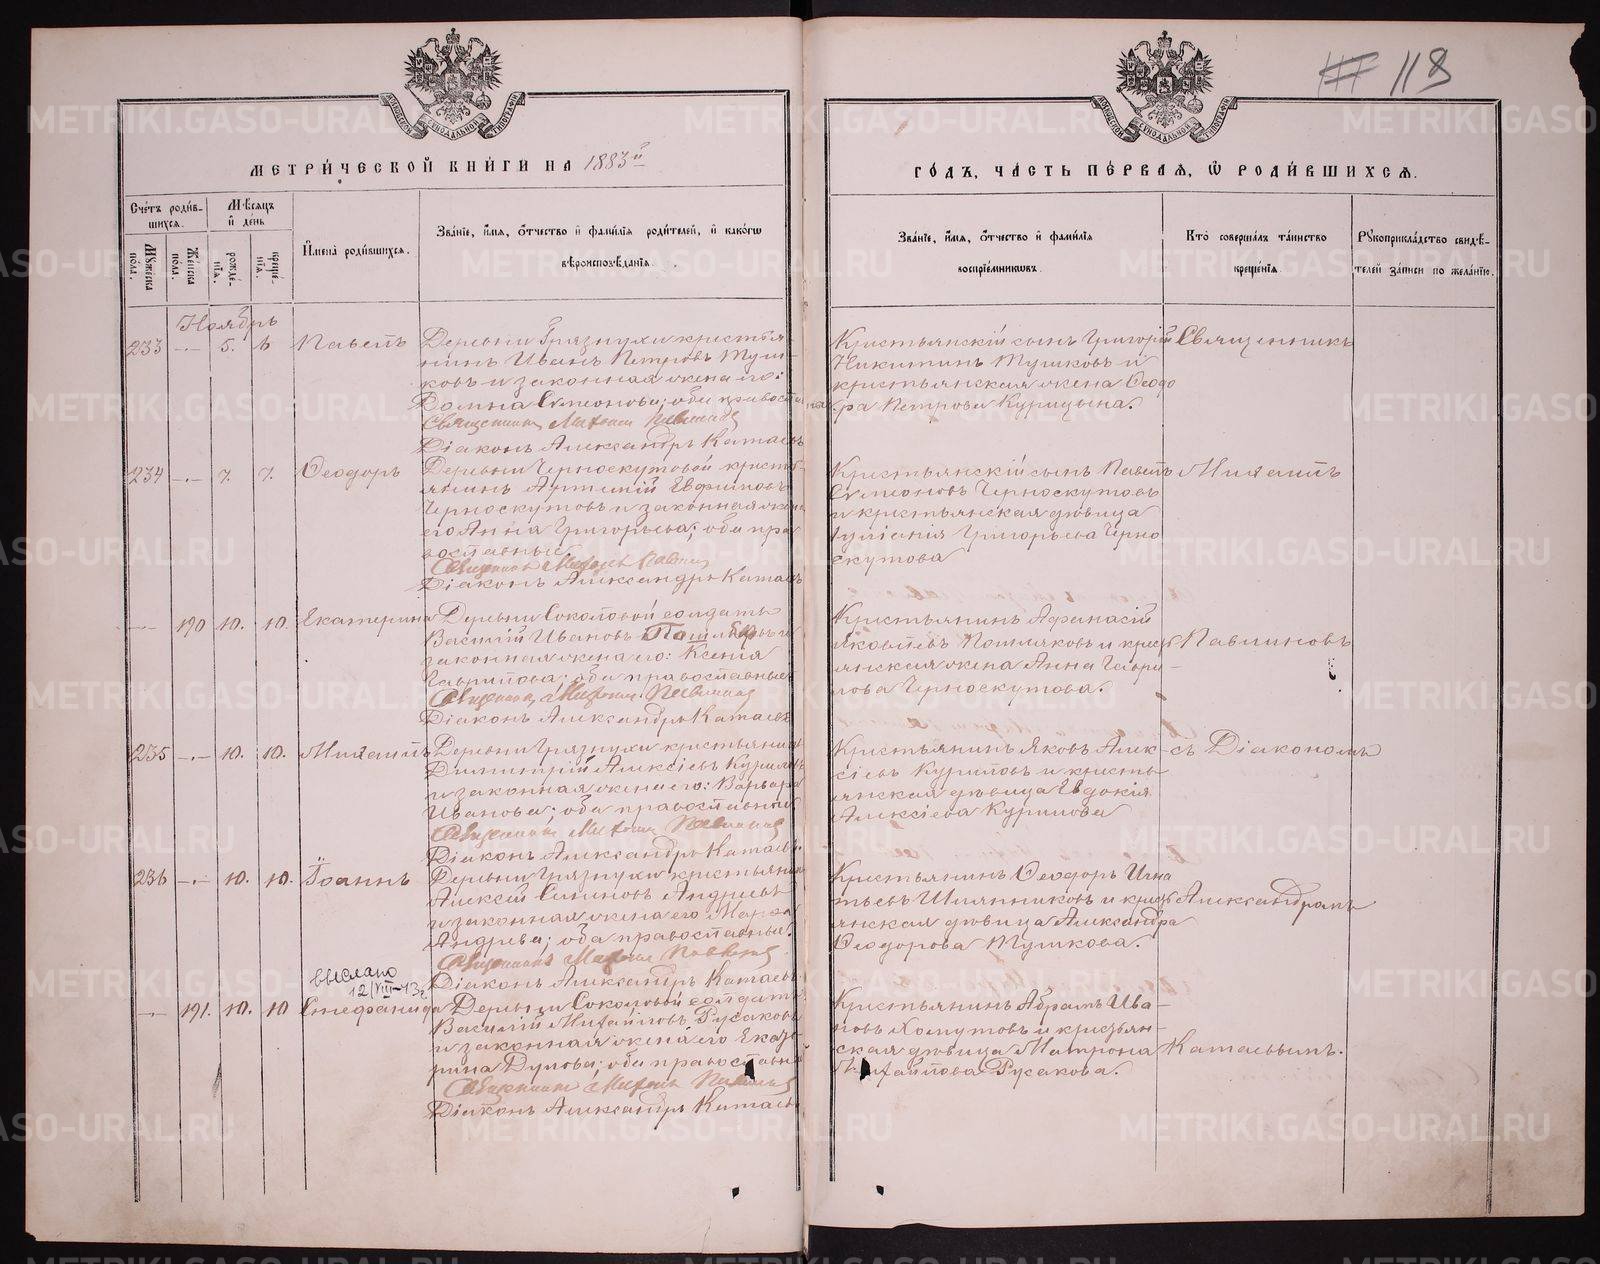 118
МЕТРИ́ЧЕСКОЙ КНИ́ГИ НА 1883й
ГО́ДЪ, ЧА́СТЬ ПЕ́РВАЯ, Ѡ РОДИ́ВШИХСЯ.
Сче́тъ роди́в-
шихся.
Му́жеска по́ла.
Же́нска по́ла.
Мѣсяцъ
и день
рожде́-
нїя.
креще́-
нїя.
Имена̀ роди́вшихся.
Зва́нїе, и́мя, о́тчество и фами́лїя роди́телей, и како́гѡ
вѣроисповѣ́данїя.
Зва́нїе, и́мя, о́тчество и фами́лїя
воспрїе́мниковъ.
Кто̀ соверша́лъ та́инство
креще́нїя.
Рꙋкоприкла́дство свидѣ́-
телей за́писи по жела́нїю.
Ноябрь
233 —·— 5. 6 Павелъ
Деревни Грязнухи крестья-
нинъ Иванъ Петровъ Туш-
ковъ и законная жена его:
Домна Симеонова; оба православные
Священникъ Михаилъ Павлиновъ
Діаконъ Александръ Катаевъ
Крестьянскій сынъ Григорій
Никитинъ Тушковъ и
крестьянская жена Ѳеодо
ра Петрова Курицына.
Священникъ
234 —·— 7. 7. Ѳеодоръ
Деревни Черноскутовой кресть-
янинъ Артемій Евфимовъ
Черноскутовъ и законная жена
его Анна Григорьева; оба пра
вославные.
Священникъ Михаилъ Павлиновъ
Діаконъ Александръ Катаевъ
Крестьянскій сынъ Павелъ
Симеоновъ Черноскутовъ
и крестьянская дѣвица
Іуліанія Григорьева Черно
скутова
Михаилъ
190 10. 10. Екатерина
Деревни Соколовой солдатъ
Василій Ивановъ
законная жена его: Ксенія
Гаврилова; оба православные
Священникъ Михаилъ Павлиновъ
Діаконъ Александръ Катаевъ
Крестьянинъ Аѳанасій
Яковлевъ Пошляковъ и крест
янская жена Анна Гаври-
лова Черноскутова.
Павлиновъ
235 —·— 10. 10. Михаилъ
Деревни Грязнухи крестьянинъ
Димитрій Алексіевъ Куриловъ
и законная жена его: Варвара
Иванова; оба православные
Священникъ Михаилъ Павлиновъ
Діаконъ Александръ Катаевъ.
Крестьянинъ Яковъ Алек-
сіевъ Куриловъ и кресть-
янская дѣвица Евдокія
Алексіева Курилова
съ Діакономъ
236 —·— 10. 10. Іоаннъ
Деревни Грязнухи крестьянинъ
Алексій Андреевъ
и законная жена его Марѳа
Андреева; оба православные.
Священникъ Михаилъ Павлиновъ
Діаконъ Александръ Катаевъ
Крестьянинъ Ѳеодоръ Игна
тьевъ Шляпниковъ и крест
янская дѣвица Александра
Ѳеодорова Тушкова.
Александромъ
выслано
12/VIII-43г
191. 10. 10 Стефанида
Деревни Соколовой солдатъ
Василій Михайловъ Русаковъ
и законная жена его Екате-
рина Дулова; оба православные
Священникъ Михаилъ Павлиновъ
Діаконъ Александръ Катаевъ
Крестьянинъ Абрамъ Ива-
новъ Хомутовъ и крестьян-
ская дѣвица Матрона
Михайлова Русакова.
Катаевымъ.
METRIKI.GASO-URAL.RU